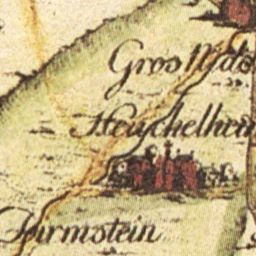 Gros Nids
Heuchelheim
Dirmstein